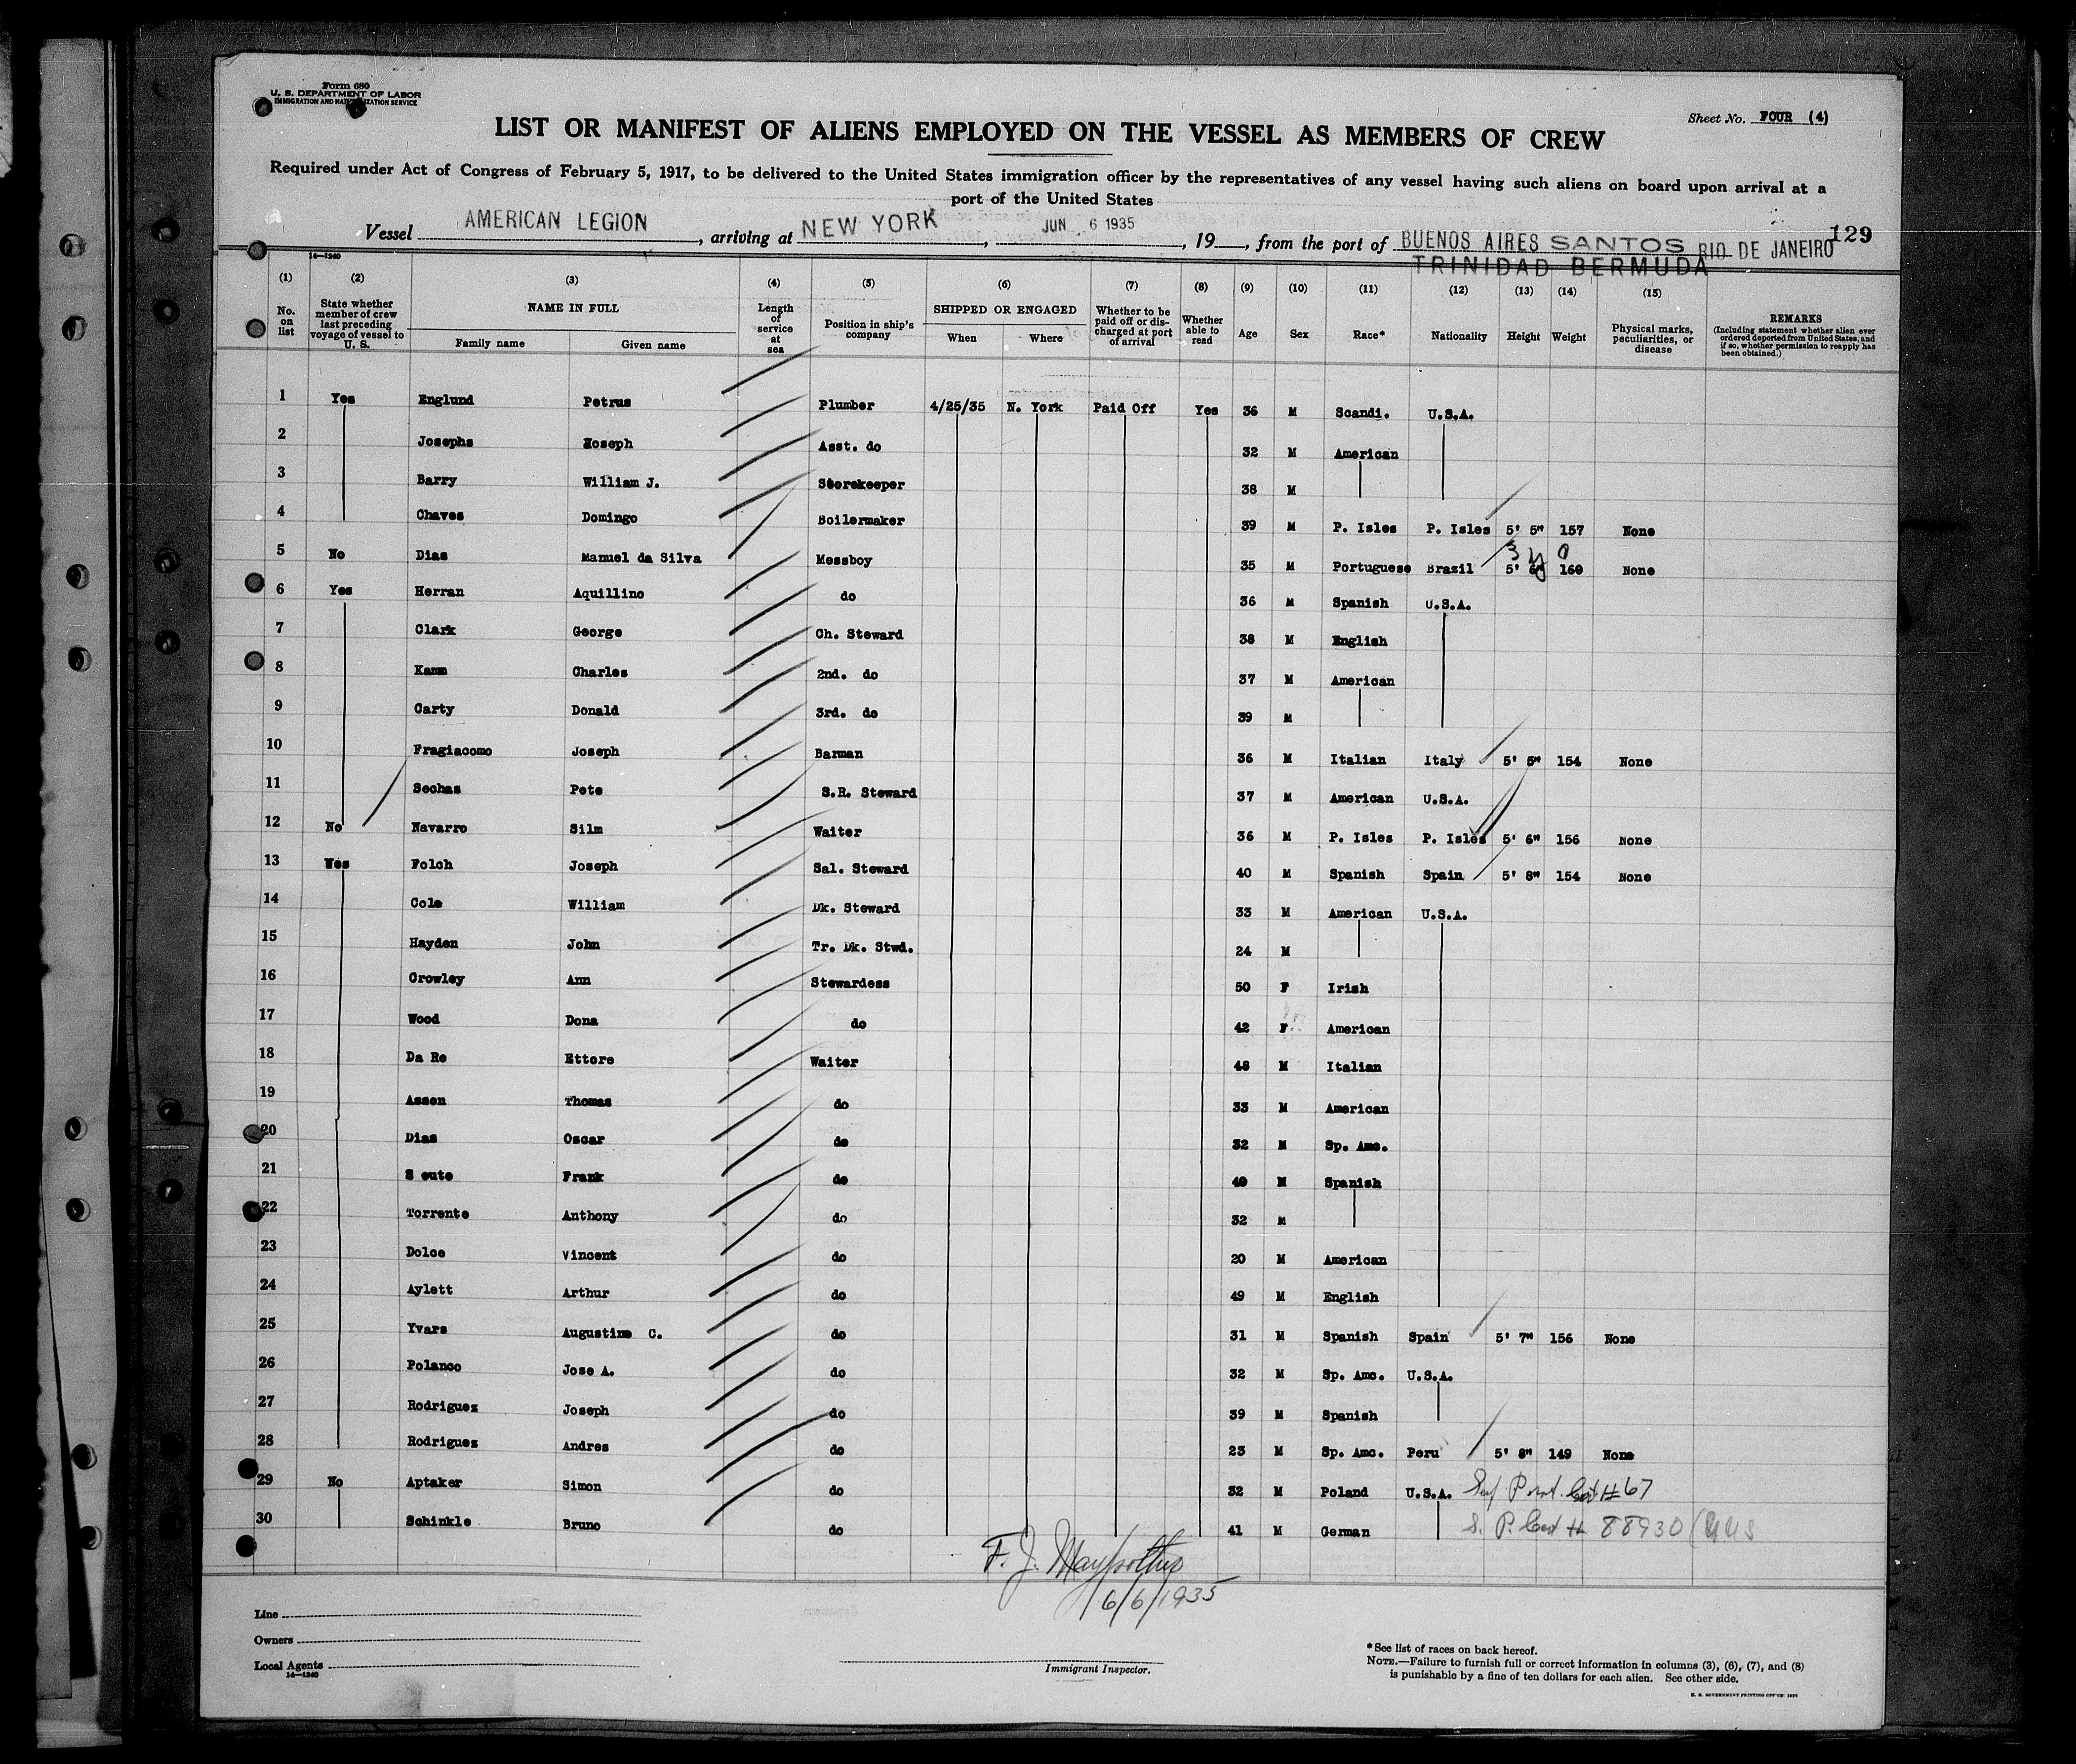 Form 680
U. S. DEPARTMENT OF LABOR
IMMIGRATION AND NATURALIZATION SERVICE
Sheet No. FOUR (4)
LIST OR MANIFEST OF ALIENS EMPLOYED ON THE VESSEL AS MEMBERS OF CREW
Required under Act of Congress of February 5, 1917, to be delivered to the United States immigration officer by the representatives of any vessel having such aliens on board upon arrival at a
port of the United States
Vessel AMERICAN LEGION, arriving at NEW YORK, JUN 6 1935, 19, from the port of BUENOS AIRES SANTOS RIO DE JANEIRO 129
TRINIDAD BERMUDA
14—1240
(1) No. on list (2) State whether member of crew last preceding voyage of vessel to U. S. (3) NAME IN FULL Family name Given name (4) Length of service at sea (5) Position in ship's company (6) SHIPPED OR ENGAGED When Where (7) Whether to be paid off or discharged at port of arrival (8) Whether able to read (9) Age (10) Sex (11) Race* (12) Nationality (13) Height (14) Weight (15) Physical marks, peculiarities, or disease REMARKS (Including statement whether alien ever ordered deported from United States, and if so, whether permission to reapply has been obtained.)
1 Yes Englund Petrus Plumber 4/25/35 N. York Paid Off Yes 36 M Scandi. U.S.A.
2 Josephs Koseph Asst. do 32 M American
3 Barry William J. Storekeeper 38 M
4 Chaves Domingo Boilermaker 39 M P. Isles P. Isles 5' 5" 157 None
5 No Dias Manuel da Silva Messboy 35 M Portuguese Brazil 5' 160 None
6 Yes Herran Aquillino do 36 M Spanish U.S.A.
7 Clark George Ch. Steward 38 M English
8 Kamm Charles 2nd. do 37 M American
9 Carty Donald 3rd. do 39 M
10 Fragiacomo Joseph Barman 36 M Italian Italy 5' 5" 154 None
11 Sechas Pete S.R. Steward 37 M American U.S.A.
12 No Navarro Silm Waiter 36 M P. Isles P. Isles 5' 6" 156 None
13 Yes Folch Joseph Sal. Steward 40 M Spanish Spain 5' 8" 154 None
14 Cole William Dk. Steward 33 M American U.S.A.
15 Hayden John Tr. Dk. Stwd. 24 M
16 Crowley Ann Stewardess 50 F Irish
17 Wood Dona do 42 F American
18 Da Re Ettore Waiter 48 M Italian
19 Assen Thomas do 33 M American
20 Dias Oscar do 32 M Sp. Amc.
21 S oute Frank do 40 M Spanish
22 Torrente Anthony do 32 M
23 Dolce Vincent do 20 M American
24 Aylett Arthur do 49 M English
25 Yvars Augustine C. do 31 M Spanish Spain 5' 7" 156 None
26 Polanco Jose A. do 32 M Sp. Amc. U.S.A.
27 Rodriguez Joseph do 39 M Spanish
28 Rodriguez Andres do 23 M Sp. Amc. Peru 5' 8" 149 None
29 No Aptaker Simon do 32 M Poland U.S.A. # 67
30 Schinkle Bruno do 41 M German S. P. Cert # 88930
F. J.
6/6/1935
Line
Owners
Local Agents
14—1240
Immigrant Inspector.
*See list of races on back hereof.
NOTE.—Failure to furnish full or correct information in columns (3), (6), (7), and (8)
is punishable by a fine of ten dollars for each alien. See other side.
U. S. GOVERNMENT PRINTING OFFICE: